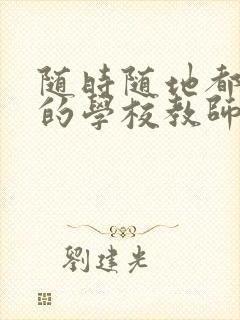 随時随地都
的學校教師
劉建光